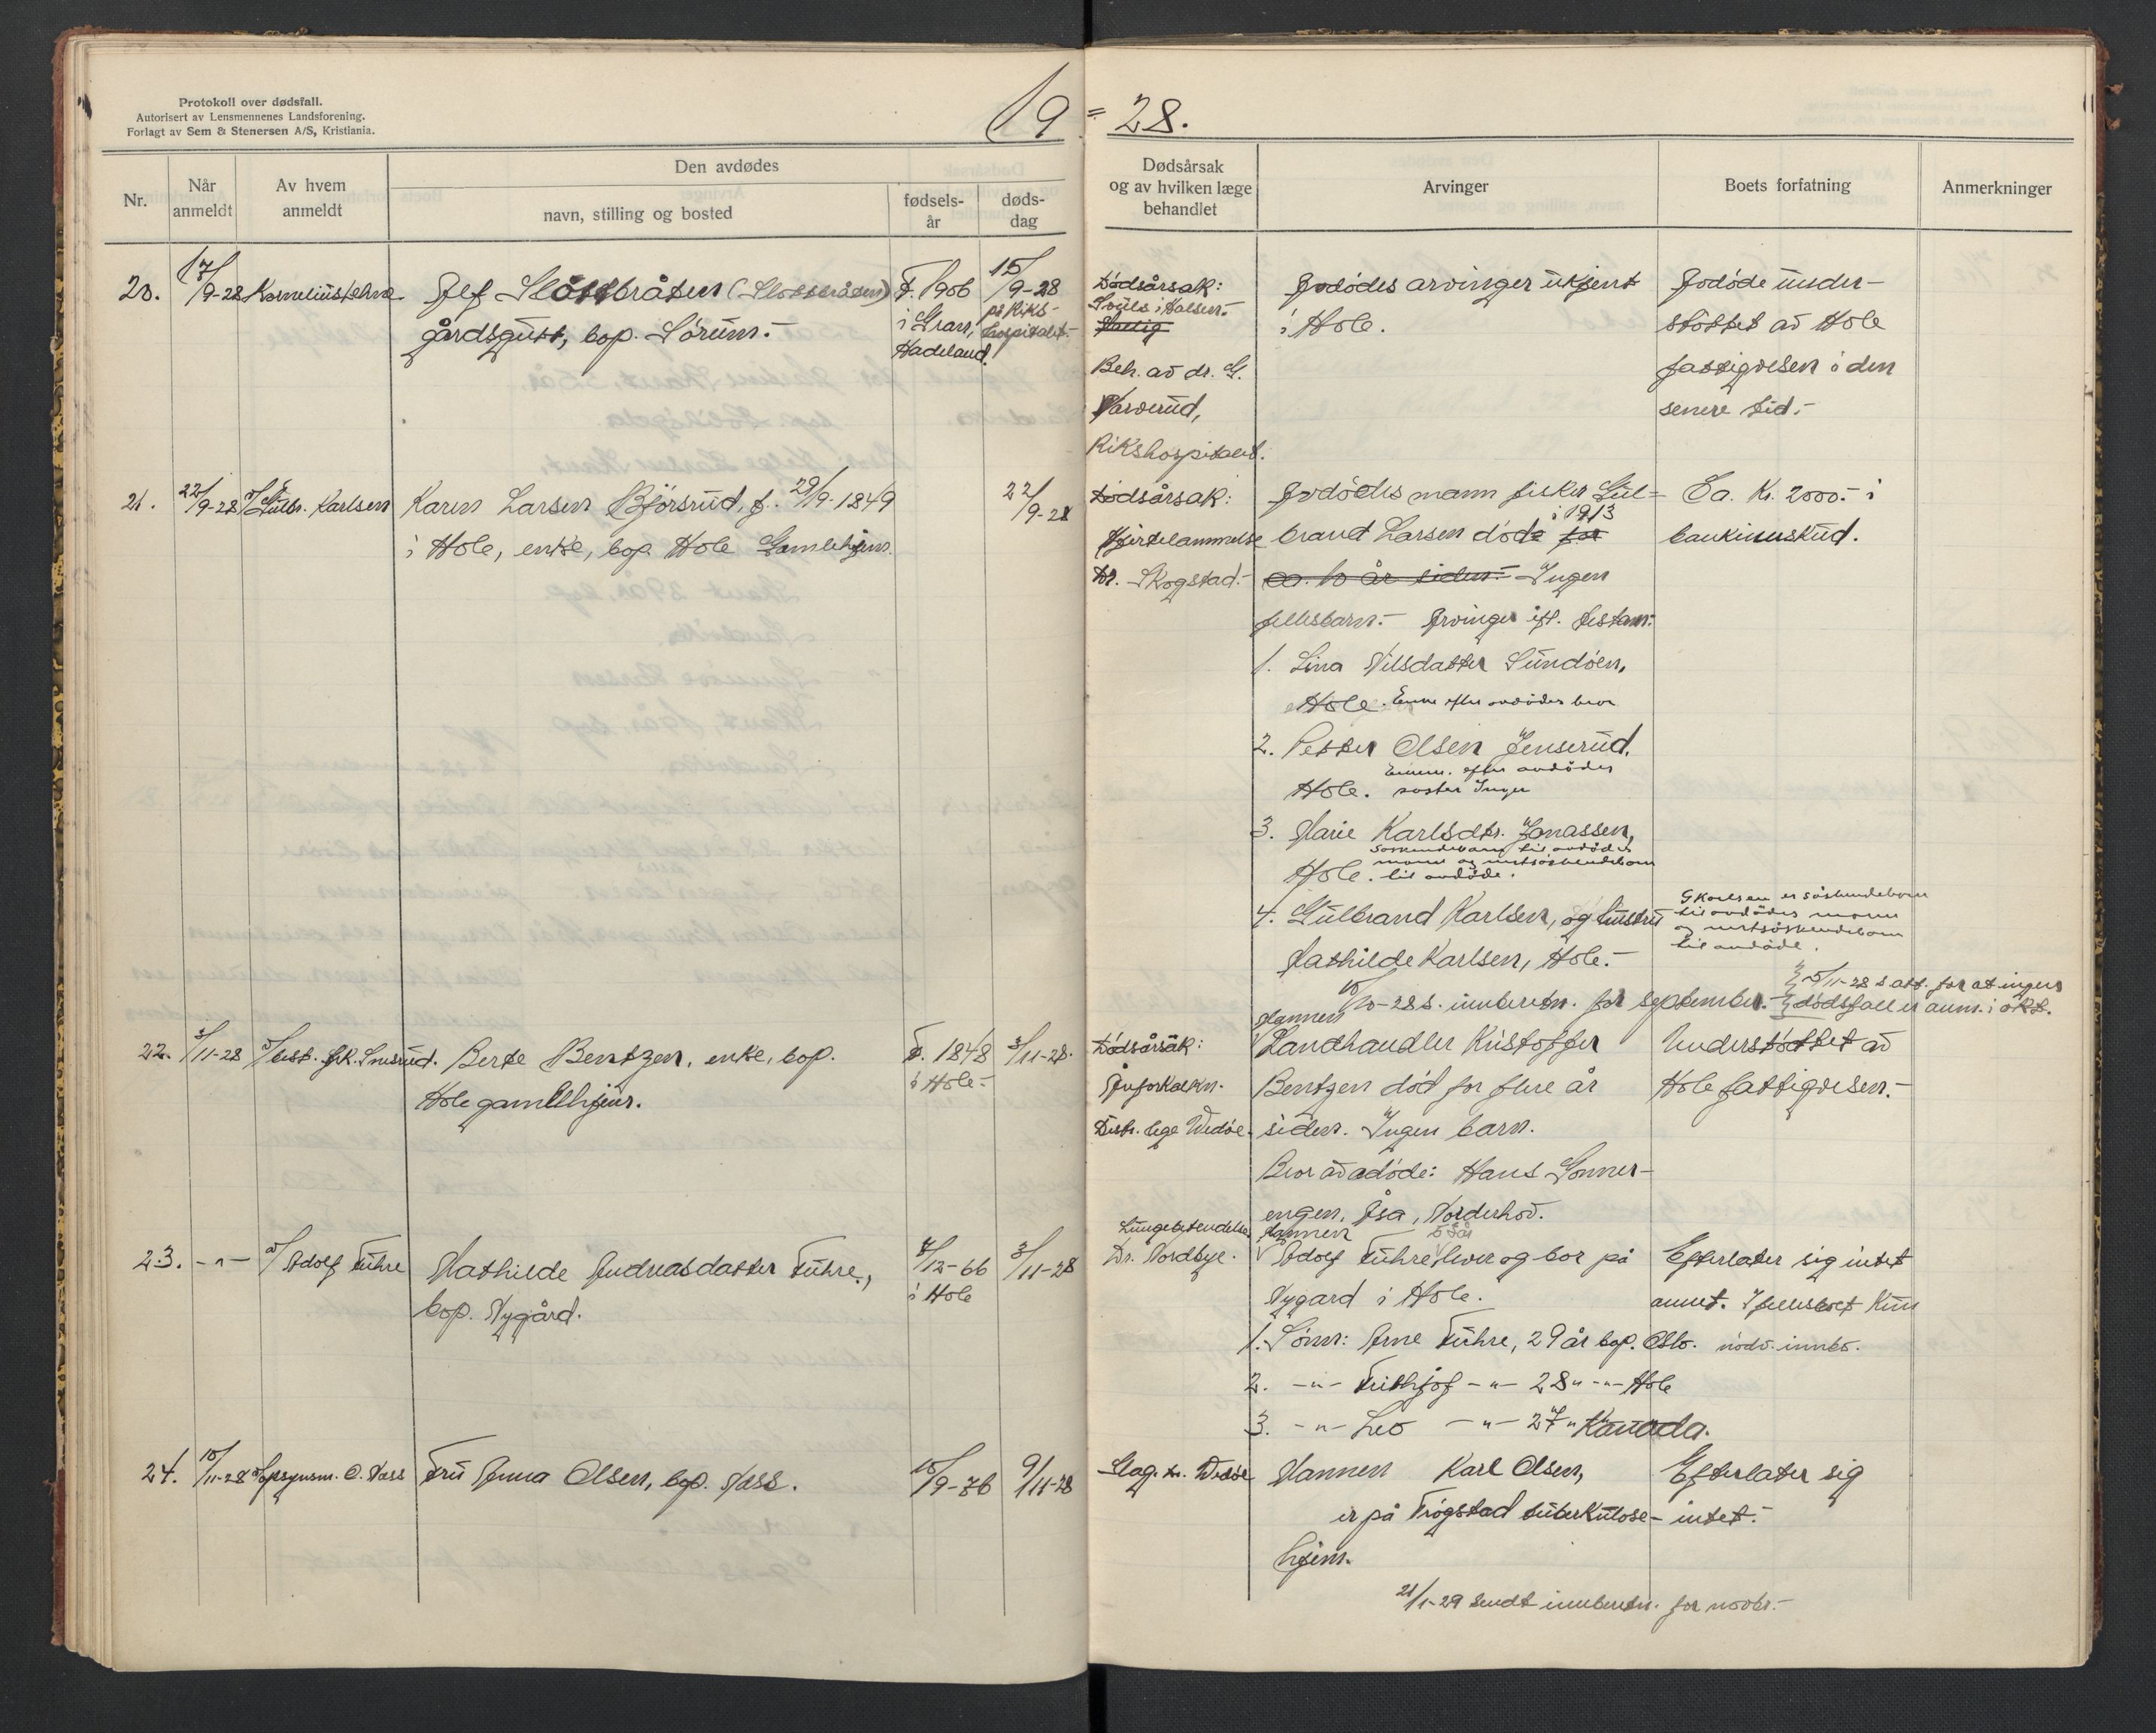 Protokoll over dødsfall.
Autorisert av Lensmennenes Landsforening.
Forlagt av Sem & Stenersen A/S, Kristiania.
19 = 28.
Nr.
Når anmeldt
Av hvem anmeldt
Den avdødes
navn, stilling og bosted
fødsels-år
døds-dag
Dødsårsak og av hvilken læge behandlet
Arvinger
Boets forfatning
Anmerkninger
20.
17/9-28
Kornelius
Slåttbråten (Slottbråten)
gårdsgutt, bop. Sörum.-
F. 1906
i Gran,
Hadeland.
15/9-28
på Riks-
hospitalet.-
Dødsårsak:
Svulst i Halsen.-
Beh. av dr. G.
Varverud,
Rikshospitalet.
Avdödes arvinger ukjent
i Hole.
Avdöde under-
stöttet av Hole
fattigvesen i den
senere tid.-
21.
22/9-28
Gulbr. Karlsen
Karen Larsen Björsrud, f. 29/9-1849
i Hole, enke, bop. Hole Gamlehjem.
22/9-28
Dødsårsak:
Hjertelammelse
Dr. Skogstad.-
Avdödes mann fisker Gul-
brand Larsen döde for i 1913
ca. 10 år siden.- Ingen
fellesbarn.- Arvinger ifl. testam:
1. Lina Nilsdatter Sundöen,
Hole. Enke efter avdödes bror
2. Petter Olsen Jenserud,
Enkem. efter avdödes
Hole. söster Inger
3. Marie Karlsdtr. Jonassen,
Söskendebarn til avdödes
mann og nestsöskendebarn
Hole. til avdöde.
4. Gulbrand Karlsen, og hustru
Mathilde Karlsen, Hole.-
Ca. Kr. 2000.- i
bankinnskud.
G Karlsen er söskendebarn
til avdödes mann
og nestsöskendebarn
til avdöde.
10/10-28 s. innberetn. for september.-
5/11-28 s. att. for at ingen
dödsfall er anm. i okt.
22.
5/11-28
best. Smsrud.
Berte Bentzen, enke, bop.
Hole gamlehjem.
F. 1848
i Hole.-
3/11-28.
Dødsårsak:
Åreforkalkn.
Distr. lege Wedöe.
Mannen
Landhandler Kristoffer
Bentzen död for flere år
siden. Ingen barn.
Bror av adöde: Hans Gonner-
engen, Åsa, Norderhov.
Understöttet av
Hole fattigvesen.-
23.
-"-
Adolf Fuhre
Mathilde Andreasdatter Fuhre,
bop. Nygård.
7/12-66
i Hole
3/11-28
Lungebetendelse
Dr. Nordbye.
Mannen
Adolf Fuhre, lever og bor på
Nygard i Hole.
1. Sönn: Arne Fuhre, 29 år bop. Oslo.
2. -"- Frithjof -"- 28 " -"- Hole
3. -"- Leo -"- 27 " Kanada.
Efterlater sig intet
annet. I fellesboet kun
nödv. innbo.
24.
10/11-28
opsynsm. O. Næss
Fru Anna Olsen, bop. Næss.
10/9-76
9/11-28
Slag. Dr. Wedöe
Mannen Karl Olsen,
er på Frögstad tuberkulose-
hjem.
Efterlater sig
intet.-
21/1-29 sendt innberetn. for novbr.-